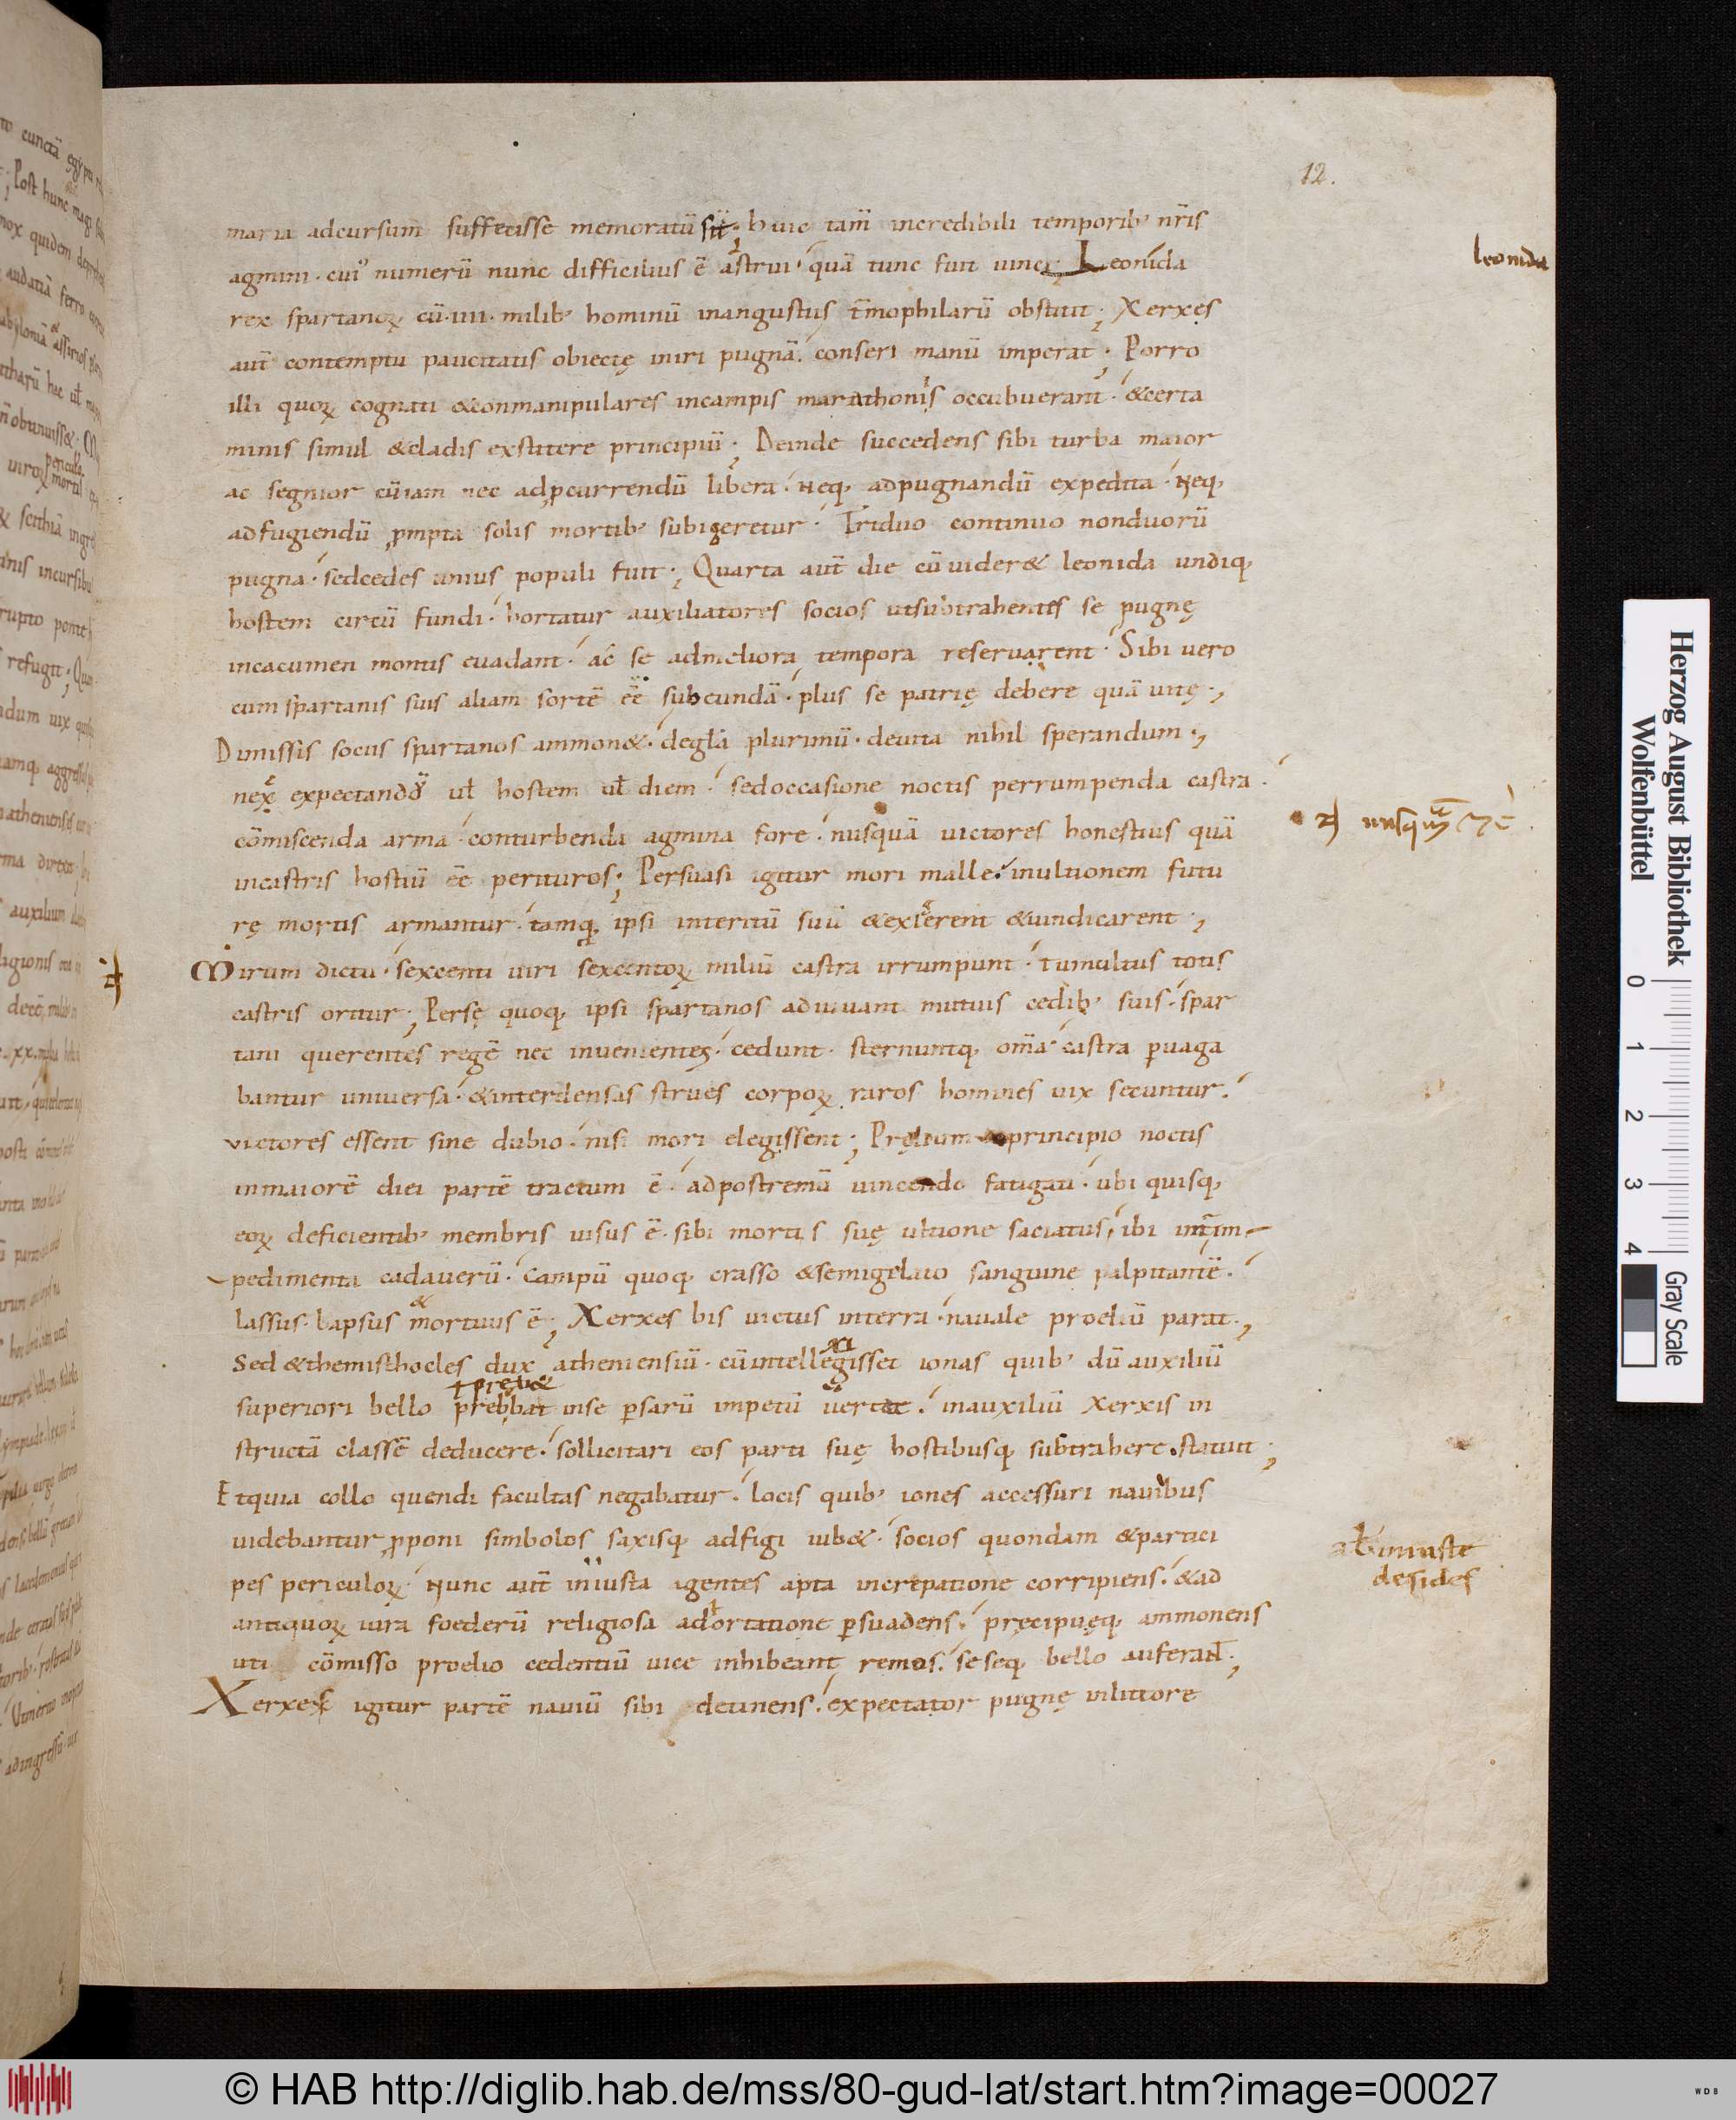 12.
maria adcursum suffecisse memoratū sit; huic tam̄ incredibili temporib' nr̄is
agmini · cui' numerū nunc difficilius ē astrui · quā tunc fuit uinci; Leonida
leonida
rex spartanoꝝ cū · iiii · milib' hominū inangustiis t̄mophilarū obstitit; Xerxes
aut̄ contemptu paucitatis obiectę iniri pugnā. conseri manū imperat; Porro
illi quoꝝ cognati &conmanipulares incampis marathoniis occubuerant · &certa
minis simul &cladis exstitere principiū; Deinde succedens sibi turba maior
ac segnior cū iam nec adꝓcurrendū libera · neq; adpugnandū expedita · neq;
adfugiendū ꝓmpta solis mortib' subigeretur · Triduo continuo nonduorū
pugna · sedcedes unius populi fuit; Quarta aut̄ die cū uider& leonida undiq;
hostem circū fundi · hortatur auxiliatores socios utsubtrahentes se pugnę
incacumen montis euadant · ac se admeliora tempora reseruarent · Sibi uero
cum spartanis suis aliam sortē eē subeundā · plus se patrię debere quā uitę ·,
Dimissis sociis spartanos ammon& · degl̄a plurimū · deuita nihil sperandum ·,
neꝗ expectandū ul̄ hostem ul̄ diem · sedoccasione noctis perrumpenda castra ·
cōmiscenda arma · conturbenda agmina fore · nusquā uictores honestius quā
incastris hostiū eē perituros; Persuasi igitur mori malle · inultionem futu
rę mortis armantur · tamq̄ ipsi interitū suū &exigerent &uindicarent ·,
Mirum dictu · sexcenti uiri sexcentoꝝ miliū castra irrumpunt · tumultus totis
castris oritur; Persę quoq; ipsi spartanos adiuuant mutuis cedib' suis · spar
tani querentes regē nec inuenientes · cedunt · sternuntq; om̄a · castra ꝑuaga
bantur uniuersa · &interdensas strues corpoꝝ raros homines uix secuntur ·
uictores essent sine dubio · nisi mori elegissent; Pręlium a principio noctis
inmaiorē diei partē tractum ē · adpostremū uincendo fatigati · ubi quisq;
eoꝝ deficientib' membris uisus ē · sibi mortis suę ultione saciatus · ibi int̄ im-
-pedimenta cadauerū · campū quoq; crasso &semigelato sanguine palpitantē ·
lassus · lapsus & mortuus ē; Xerxes bis uictus interra · nauale proeliū parat ·,
Sed &themisthocles dux atheniensiū · cū intellegisset ionas quib' dū auxiliū
superiori bello prebebat inse ꝑsarū impetū uerterat · inauxiliū xerxis in
structā classē deducere · sollicitari eos parti suę hostibusq; subtrahere statuit;
Etquia collo quendi facultas negabatur · locis quib' iones accessuri nauibus
uidebantur ꝓponi simbolos saxisq; adfigi iub& · socios quondam &partici
pes periculoꝝ · Nunc aut̄ iniusta agentes apta increpatione corripiens · &ad
antiquoꝝ iura foederū religiosa adortatione ꝑsuadens · pręcipuęq; ammonens
uti cōmisso proelio cedentiū uice inhibeant remos · seseq; bello auferant;
Xerxes igitur partē nauiū sibi detinens · expectator pugnę inlittore
al̄ iniuste
desides
Herzog August Bibliothek
Wolfenbüttel
0 1 2 3 4
Gray Scale
© HAB http://diglib.hab.de/mss/80-gud-lat/start.htm?image=00027
WDB